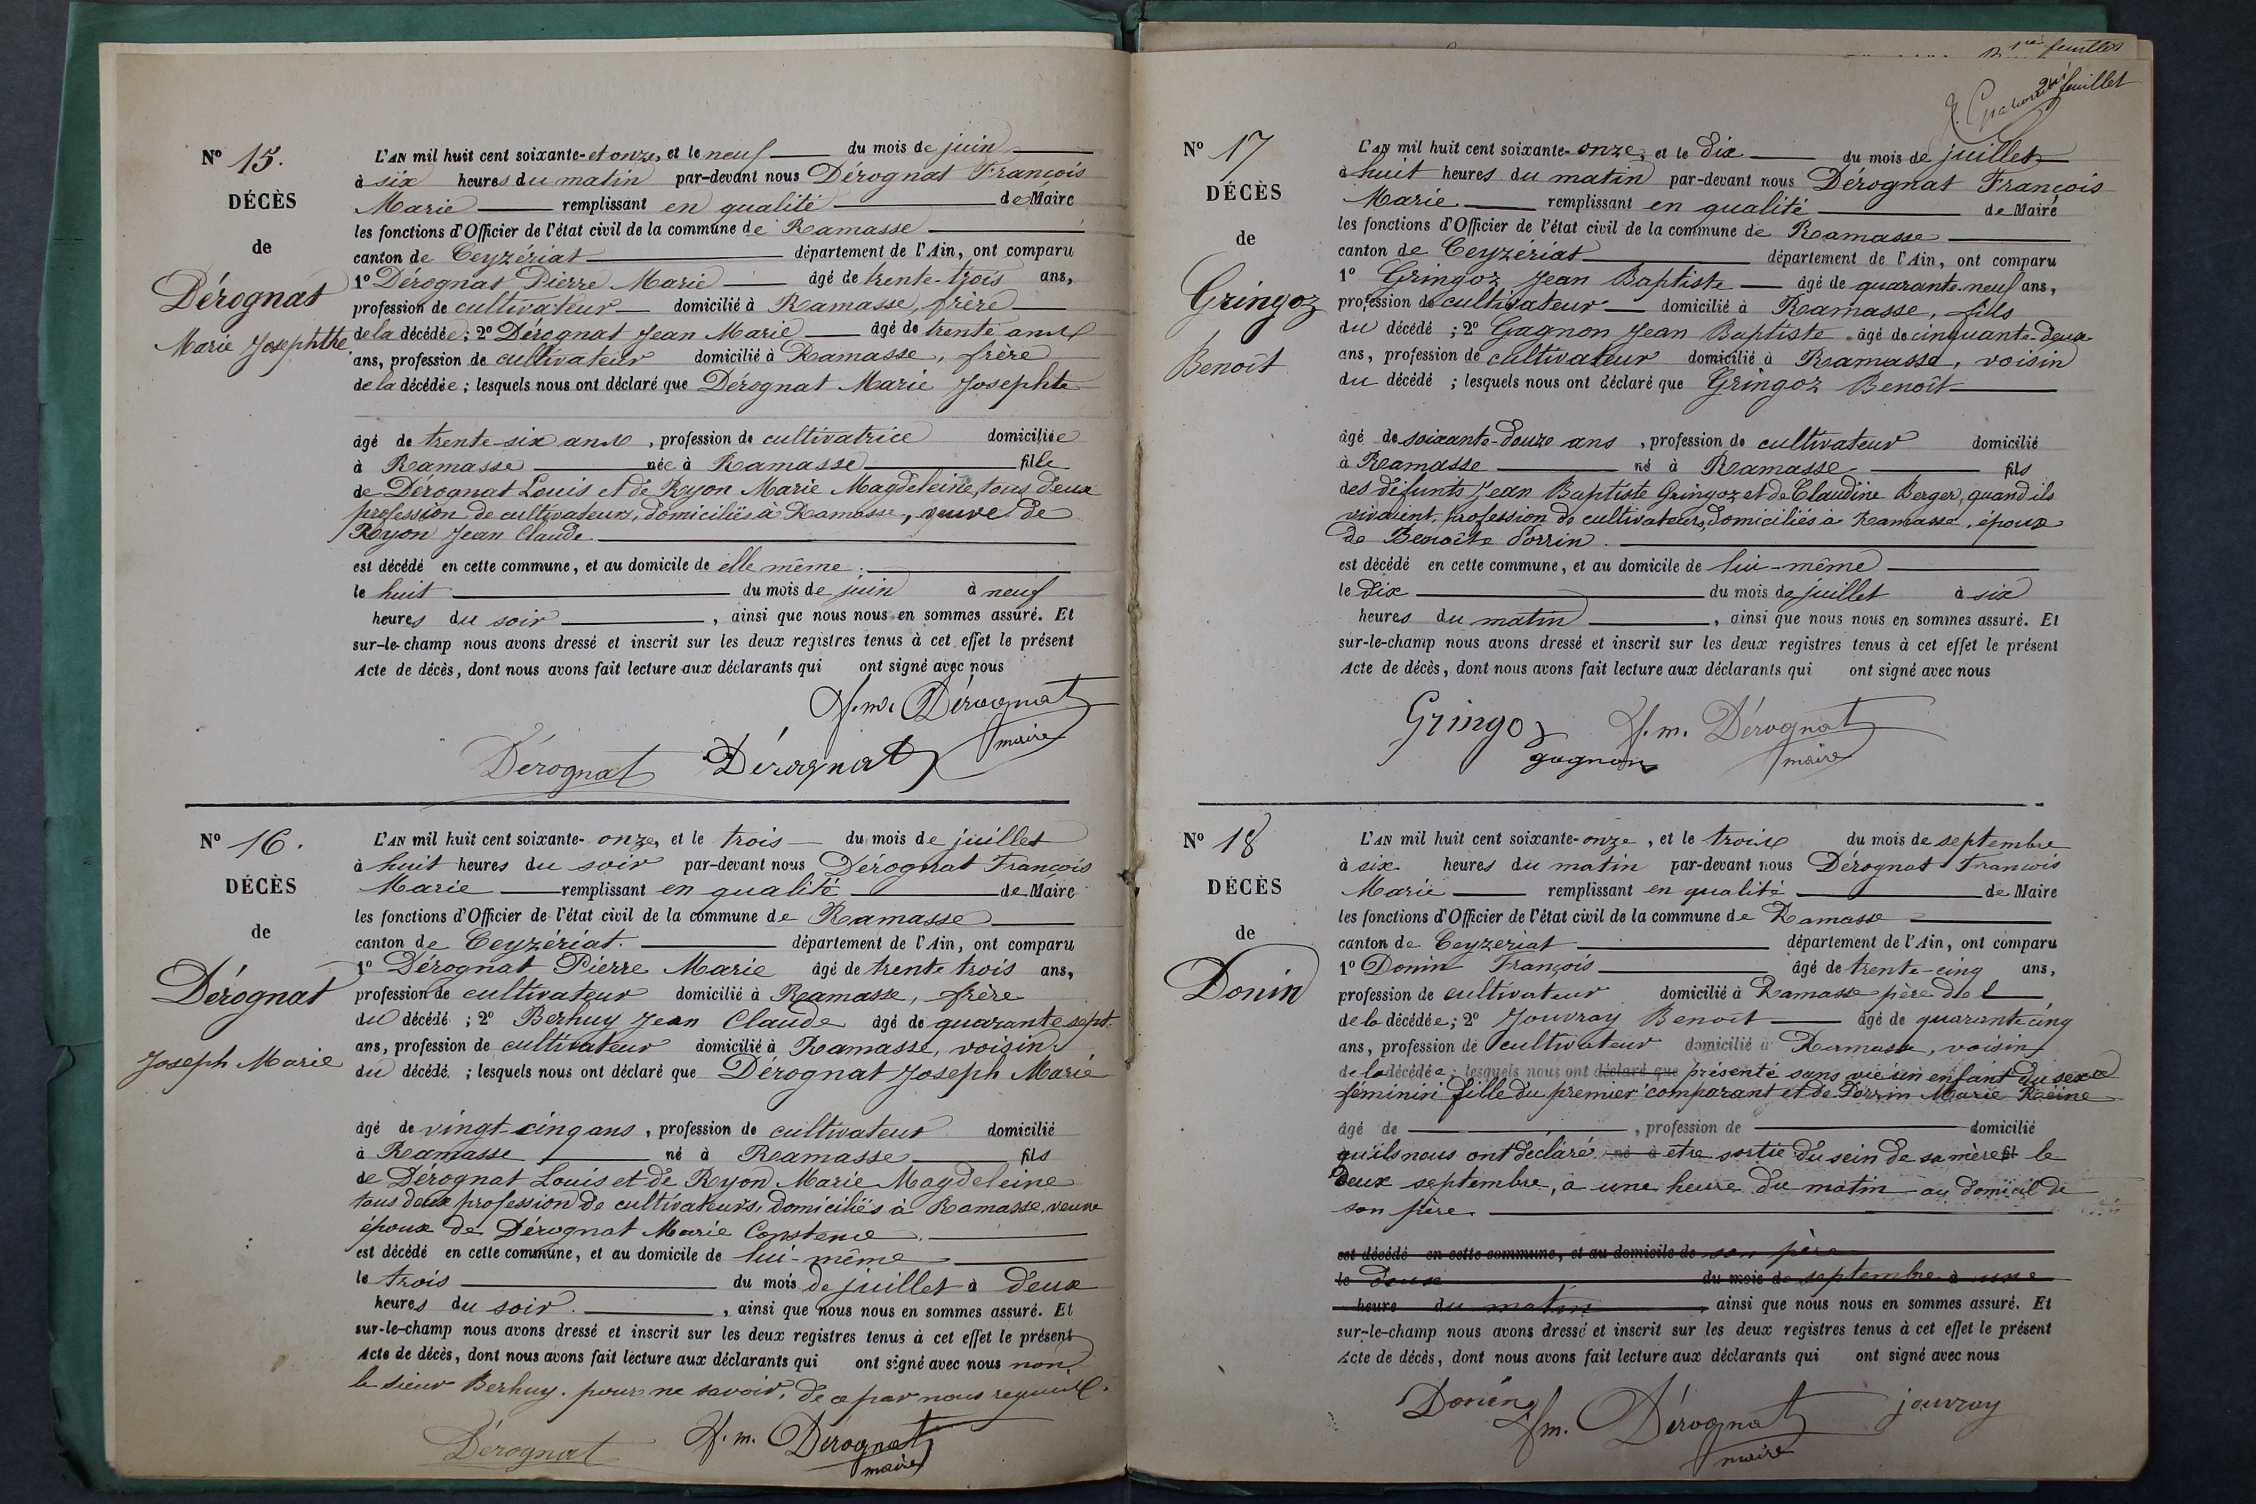 Nº 15.
DÉCÈS
de
Dérognat
Marie Josephthe
L'AN mil huit cent soixante-et onze, et le neuf du mois de juin
à six heures du matin par-devant nous Dérognat François
Marie remplissant en qualité de Maire
les fonctions d'Officier de l'état civil de la commune de Ramasse
canton de Ceyzériat département de l'Ain, ont comparu
1º Dérognat Pierre Marie âgé de trente-trois ans,
profession de cultivateur domicilié à Ramasse, frère
de la décédée; 2º Dérognat Jean Marie âgé de trente ans
ans, profession de cultivateur domicilié à Ramasse, frère
de la décédée; lesquels nous ont déclaré que Dérognat Marie Josephte
âgé de trente-six ans, profession de cultivatrice domiciliée
à Ramasse née à Ramasse fille
de Dérognat Louis et de Ryon Marie Magdeleine, tous deux
profession de cultivateurs, domiciliés à Ramasse, veuve de
Ryon Jean Claude
est décédé en cette commune, et au domicile de elle même.
le huit du mois de juin à neuf
heures du soir, ainsi que nous nous en sommes assuré. Et
sur-le-champ nous avons dressé et inscrit sur les deux registres tenus à cet effet le présent
Acte de décès, dont nous avons fait lecture aux déclarants qui ont signé avec nous
f. m. Dérognat
maire
Dérognat Dérognat
Nº 16.
DÉCÈS
de
Dérognat
Joseph Marie
L'AN mil huit cent soixante-onze, et le trois du mois de juillet
à huit heures du soir par-devant nous Dérognat François
Marie remplissant en qualité de Maire
les fonctions d'Officier de l'état civil de la commune de Ramasse
canton de Ceyzériat. département de l'Ain, ont comparu
1º Dérognat Pierre Marie âgé de trente trois ans,
profession de cultivateur domicilié à Ramasse, frère
du décédé; 2º Berhuy Jean Claude âgé de quarante sept.
ans, profession de cultivateur domicilié à Ramasse, voisin
du décédé; lesquels nous ont déclaré que Dérognat Joseph Marie
âgé de vingt-cinq ans, profession de cultivateur domicilié
à Ramasse né à Ramasse fils
de Dérognat Louis et de Ryon Marie Magdeleine
tous deux profession de cultivateurs, domiciliés à Ramasse,
époux de Dérognat Marie Constence
est décédé en cette commune, et au domicile de lui-même
le trois du mois de juillet à deux
heures du soir., ainsi que nous nous en sommes assuré. Et
sur-le-champ nous avons dressé et inscrit sur les deux registres tenus à cet effet le présent
Acte de décès, dont nous avons fait lecture aux déclarants qui ont signé avec nous non
le sieur Berhuy. pour ne savoir, de ce par nous requis.
Dérognat f. m. Dérognat
maire
1re feuillet
2me feuillet
Nº 17
DÉCÈS
de
Gringoz
Benoît
L'AN mil huit cent soixante-onze, et le dix du mois de juillet
à huit heures du matin par-devant nous Dérognat François
Marie remplissant en qualité de Maire
les fonctions d'Officier de l'état civil de la commune de Ramasse
canton de Ceyzériat département de l'Ain, ont comparu
1º Gringoz Jean Baptiste âgé de quarante-neuf ans,
profession de cultivateur domicilié à Ramasse, fils
du décédé; 2º Gagnon Jean Baptiste âgé de cinquante-deux
ans, profession de cultivateur domicilié à Ramasse, voisin
du décédé; lesquels nous ont déclaré que Gringoz Benoît
âgé de soixante-douze ans, profession de cultivateur domicilié
à Ramasse né à Ramasse fils
des défunts Jean Baptiste Gringoz et de Claudine Berger, quand ils
vivaient, profession de cultivateurs, domiciliés à Ramasse, époux
de Benoîte Dorrin.
est décédé en cette commune, et au domicile de lui-même
le dix du mois de juillet à six
heures du matin, ainsi que nous nous en sommes assuré. Et
sur-le-champ nous avons dressé et inscrit sur les deux registres tenus à cet effet le présent
Acte de décès, dont nous avons fait lecture aux déclarants qui ont signé avec nous
Gringoz f. m. Dérognat
gagnon maire
Nº 18
DÉCÈS
de
Donin
L'AN mil huit cent soixante-onze, et le trois du mois de septembre
à six heures du matin par-devant nous Dérognat François
Marie remplissant en qualité de Maire
les fonctions d'Officier de l'état civil de la commune de Ramasse
canton de Ceyzeriat département de l'Ain, ont comparu
1º Donin François âgé de trente-cinq ans,
profession de cultivateur domicilié à Ramasse père de l
de la décédée; 2º Jouvray Benoît âgé de quarante cinq
ans, profession de cultivateur domicilié à Ramasse, voisin
de la décédée; lesquels nous ont déclaré que présenté sans vie un enfant du sexe
féminin fille du premier comparant et de Dorrin Marie Reine
âgé de, profession de domicilié
qu'ils nous ont déclaré né à etre sortie du sein de sa mère fil le
deux septembre, à une heure du matin au domicil de
son père.
est décédé en cette commune, et au domicile de son père
le deux du mois de septembre à une
heure du matin, ainsi que nous nous en sommes assuré. Et
sur-le-champ nous avons dressé et inscrit sur les deux registres tenus à cet effet le présent
Acte de décès, dont nous avons fait lecture aux déclarants qui ont signé avec nous
Donin f. m. Dérognat jouvray
maire